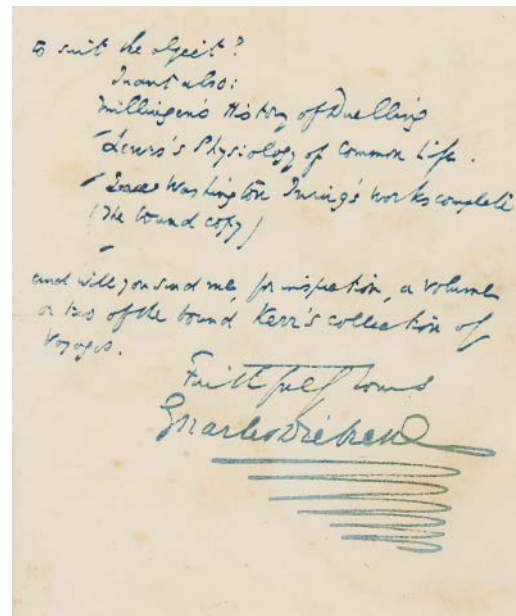 to suit the object?
I want also:
Millingen's History of Duelling
Lewes's Physiology of Common Life.
Washington Irving's works complete
(The bound copy)
and will you send me, for inspection, a volume
or two of the bound Kerr's collection of
Voyages.
Faithfully Yours
Charles Dickens